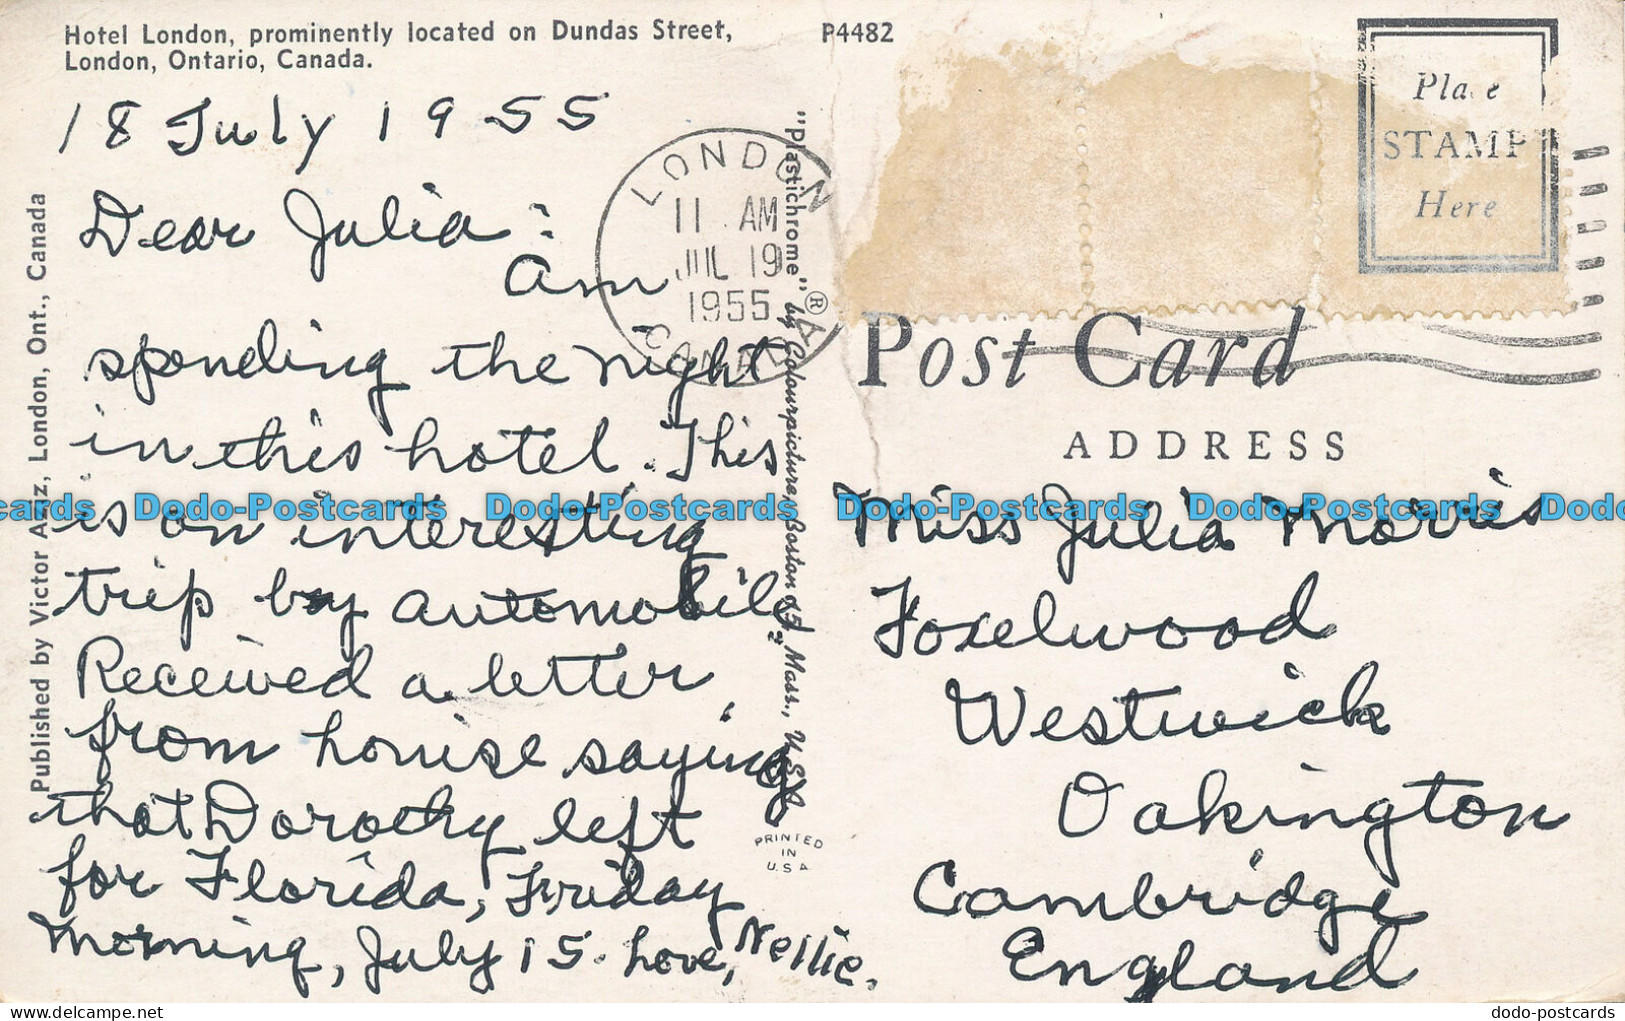 Hotel London, prominently located on Dundas Street,
London, Ontario, Canada.
P4482
18 July 1955
Dear Julia:
Am
spending the night
in this hotel. This
is an interesting
trip by automobile.
Received a letter
from Louise saying
that Dorothy left
for Florida, Friday
morning, July 15. Love, Nellie.
Published by Victor Aziz, London, Ont., Canada
"Plastichrome" ® by Colourpicture, Boston 15, Mass., U.S.A.
PRINTED
IN
U.S.A
LONDON
11 AM
JUL 19
1955
CANADA
Place
STAMP
Here
Post Card
ADDRESS
Miss Julia Morris
Foxelwood
Westwick
Oakington
Cambridge
England
Dodo-Postcards Dodo-Postcards Dodo-Postcards Dodo-Postcards Dodo
dodo-postcards